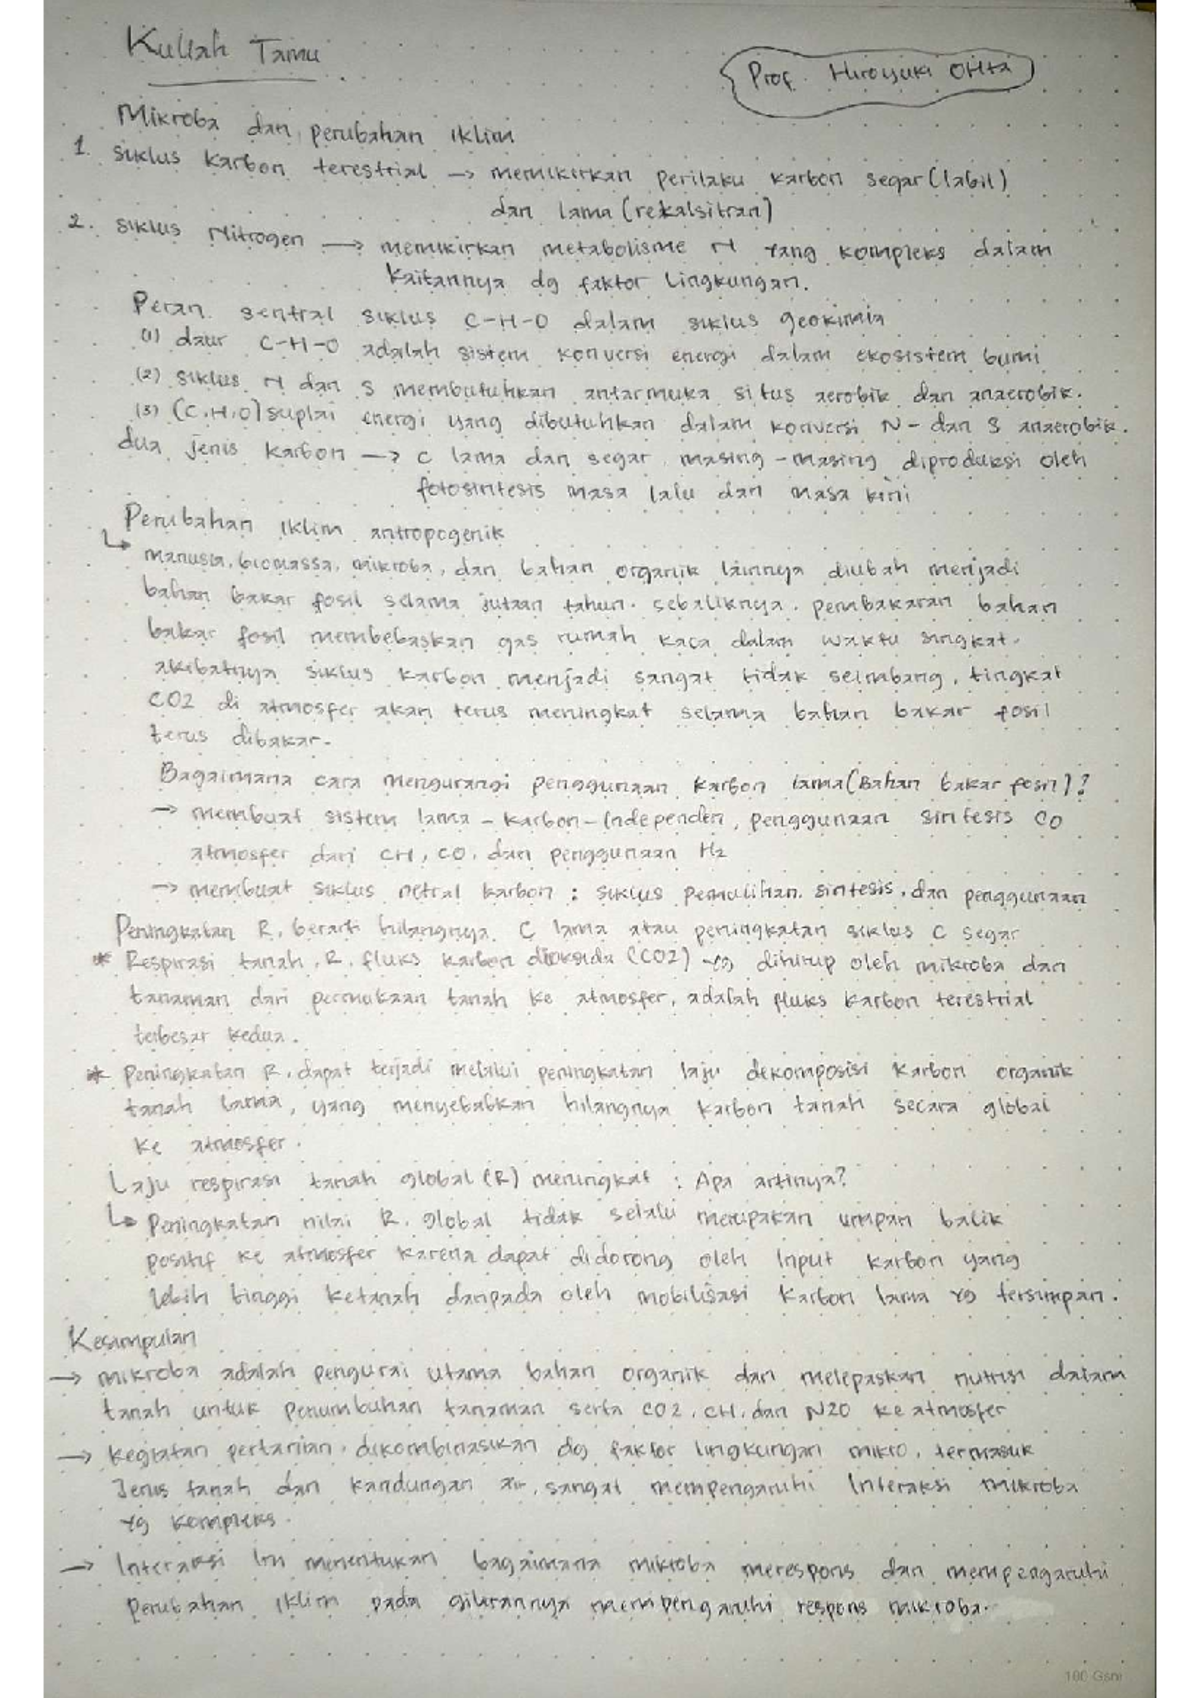 Kuliah Tamu
Prof. Hiroyuki Ohta
Mikroba dan perubahan iklim
1. siklus karbon terestrial → memikirkan perilaku karbon segar (labil)
dan lama (rekalsitran)
2. siklus Nitrogen → memikirkan metabolisme N yang kompleks dalam
kaitannya dg faktor lingkungan.
Peran sentral siklus C-H-O dalam siklus geokimia
(1) daur C-H-O adalah sistem konversi energi dalam ekosistem bumi
(2) siklus N dan S membutuhkan antarmuka situs aerobik dan anaerobik.
(3) (C,H,O) suplai energi yang dibutuhkan dalam konversi N- dan S anaerobik.
dua jenis karbon → C lama dan segar masing-masing diproduksi oleh
fotosintesis masa lalu dan masa kini
Perubahan iklim antropogenik
↳ manusia, biomassa, mikroba, dan bahan organik lainnya diubah menjadi
bahan bakar fosil selama jutaan tahun. sebaliknya. pembakaran bahan
bakar fosil membebaskan gas rumah kaca dalam waktu singkat.
akibatnya siklus karbon menjadi sangat tidak seimbang, tingkat
CO2 di atmosfer akan terus meningkat selama bahan bakar fosil
terus dibakar.
Bagaimana cara mengurangi penggunaan karbon lama (Bahan bakar fosil)?
→ membuat sistem lama-karbon-independen, penggunaan sintesis CO
atmosfer dari CH, CO, dan penggunaan H2
→ membuat siklus netral karbon : siklus pemulihan, sintesis, dan penggunaan
Peningkatan R, berarti hilangnya C lama atau peningkatan siklus C segar
* Respirasi tanah, R, fluks karbon dioksida (CO2) yg dihirup oleh mikroba dan
tanaman dari permukaan tanah ke atmosfer, adalah fluks karbon terestrial
terbesar kedua.
* Peningkatan R, dapat terjadi melalui peningkatan laju dekomposisi karbon organik
tanah lama, yang menyebabkan hilangnya karbon tanah secara global
ke atmosfer.
Laju respirasi tanah global (R) meningkat : Apa artinya?
↳ Peningkatan nilai R, global tidak selalu merupakan umpan balik
positif ke atmosfer karena dapat didorong oleh input karbon yang
lebih tinggi ketanah daripada oleh mobilisasi karbon lama yg tersimpan.
Kesimpulan
→ mikroba adalah pengurai utama bahan organik dan melepaskan nutrisi dalam
tanah untuk penumbuhan tanaman serta CO2, CH, dan N2O ke atmosfer
→ kegiatan pertanian, dikombinasikan dg faktor lingkungan mikro, termasuk
Jenis tanah dan kandungan air, sangat mempengaruhi Interaksi mikroba
yg kompleks.
→ Interaksi Ini menentukan bagaimana mikroba merespons dan mempengaruhi
perubahan iklim pada gilirannya mempengaruhi respons mikroba.
100 Gsm